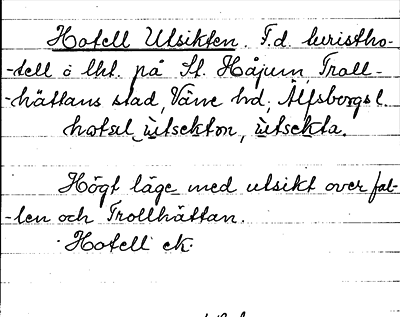 Hotell Utsikten. F.d. turistho-
-tell o lht. på St. Håjum, Troll-
-hättans stad, Väne hd, Älfsborgs l.
hotel ùtsektən, ùtsekta.
Högt läge med utsikt over fal-
-len och Trollhättan.
Hotell ek.